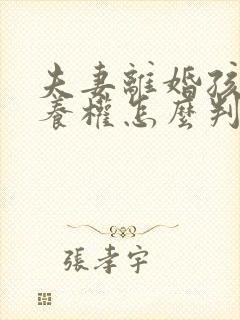 夫妻離婚孩
養權怎麼判
張孝宇